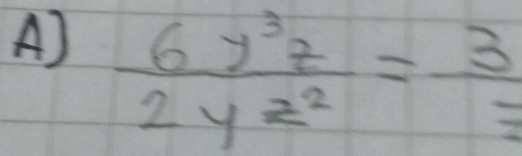 A) \frac{6 y^3 z}{2 y z^2} = \frac{3}{z}